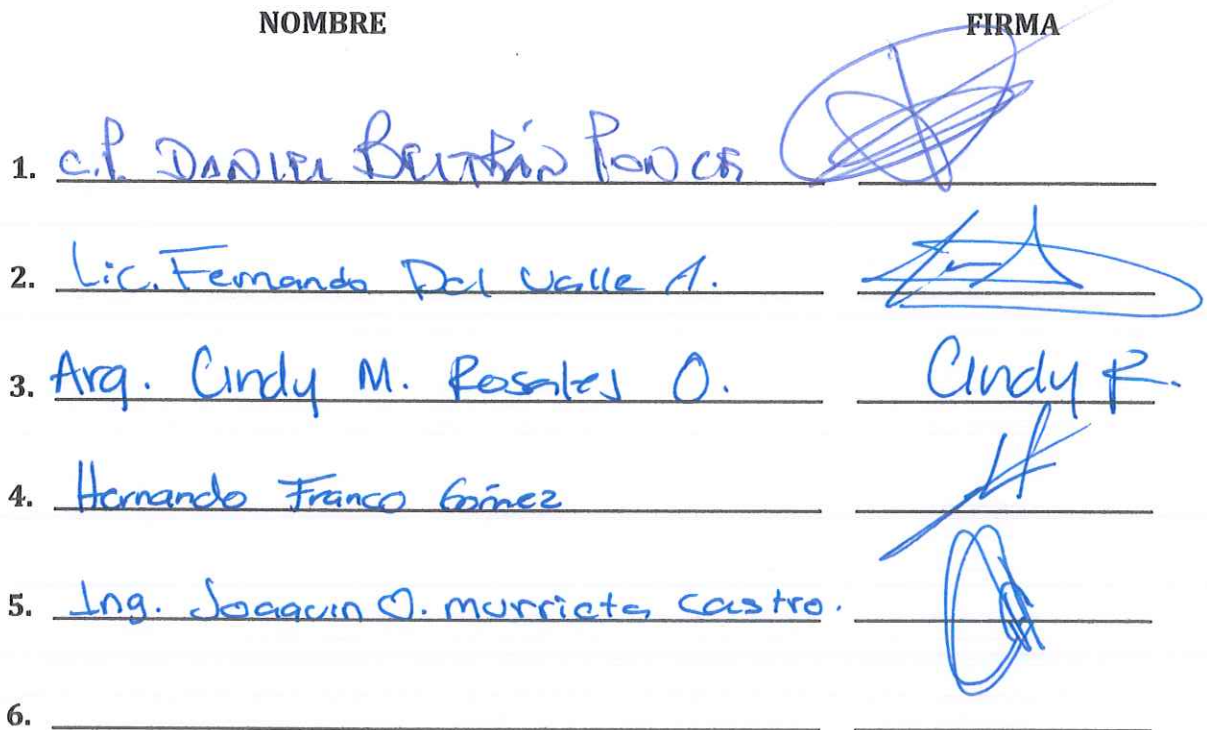 NOMBRE FIRMA
1. C.P. DANIEL BELTRÁN PONCE
2. Lic. Fernando Del Valle A.
3. Arq. Cindy M. Rosales O. Cindy R.
4. Hernando Franco Gómez
5. Ing. Joaquin O. murrieta castro.
6.